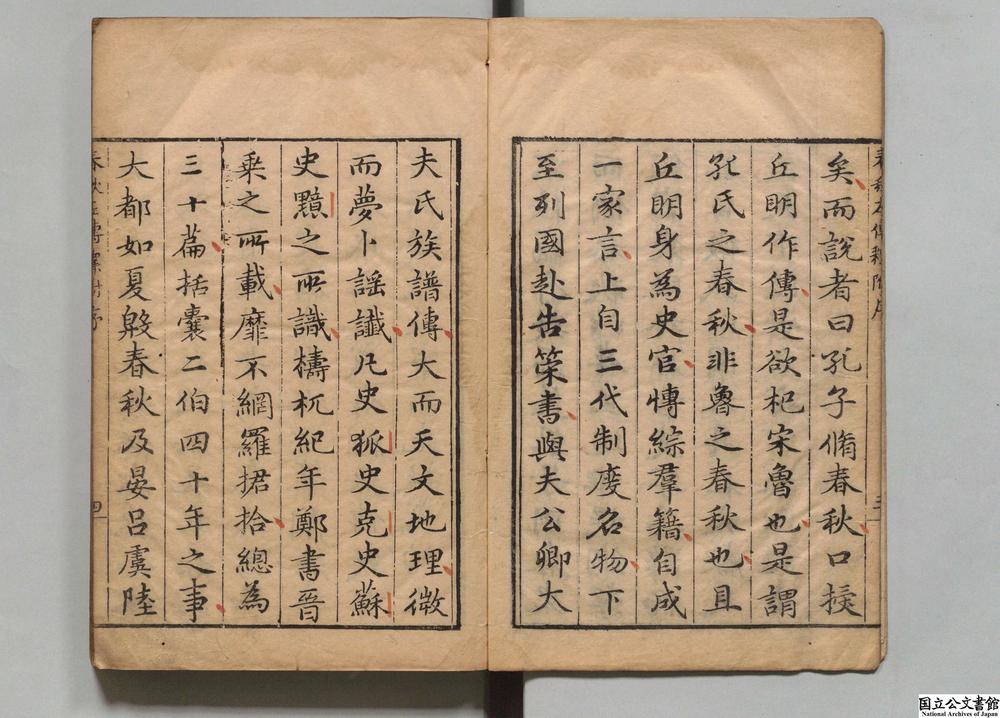 矣而說者曰孔子脩春秋口授
丘明作傳是欲杞宋魯也是謂
孔氏之春秋非魯之春秋也且
丘明身為史官博綜羣籍自成
一家言上自三代制度名物下
至列國赴告策書與夫公卿大
夫氏族譜傳大而天文地理微
而夢卜謡讖凡史狐史克史蘇
史黯之所識檮杌紀年鄭書晉
乗之所載靡不網羅捃拾總為
三十篇括囊二伯四十年之事
大都如夏殷春秋及晏呂虞陸
春秋左傳釋附序
三
春秋左傳釋附序
四
国立公文書館
National Archives of Japan